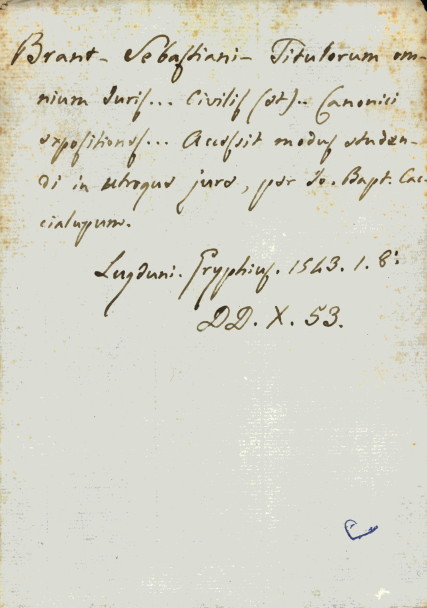 Brant - Sebastiani - Titulorum om-
nium Juris... Civilis (et).. Canonici
expositiones... Accessit modus studen-
di in utroque jure, per Jo. Bapt. Cac-
cialupum.
Lugduni. Gryphius. 1543. 1. 8:
DD. X. 53.